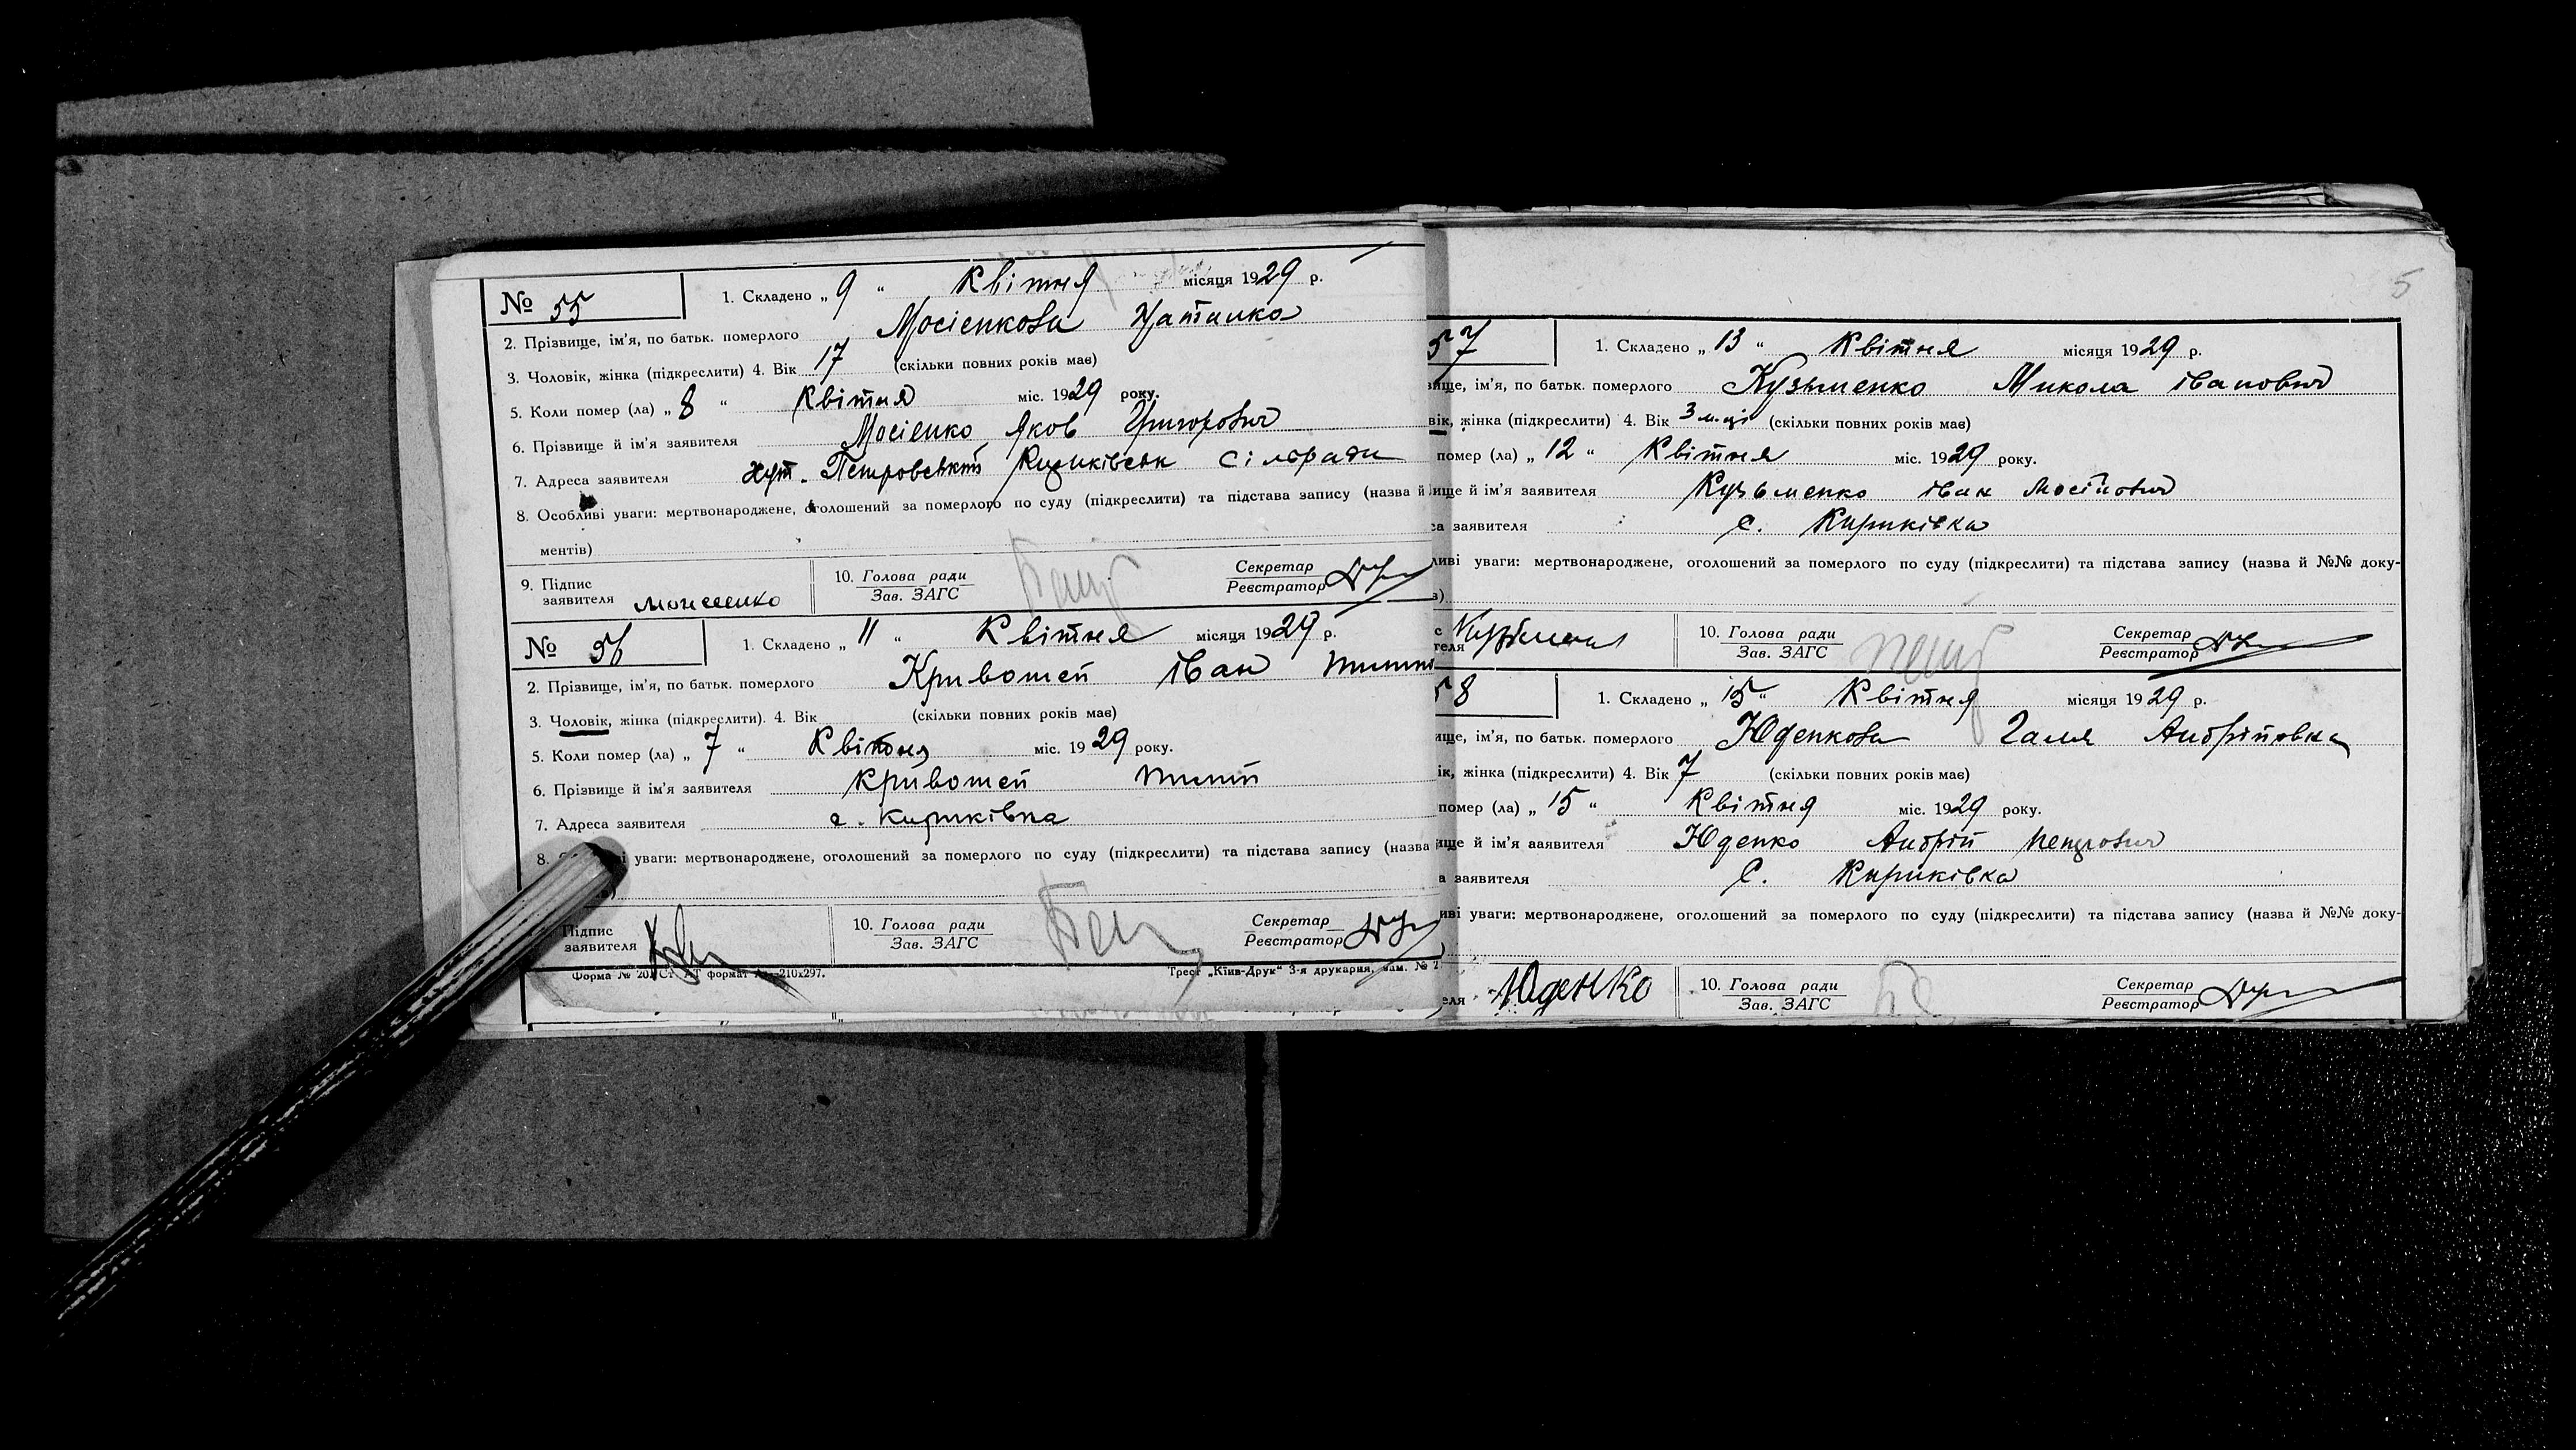 № 55
1. Складено „ 9 “ Квітня місяця 1929 р.
2. Прізвище, ім’я, по батьк. померлого Мосієнкова
3. Чоловік, жінка (підкреслити) 4. Вік 17 (скільки повних років має)
5. Коли помер (ла) „ 8 “ Квітня міс. 1929 року.
6. Прізвище й ім’я заявителя Мосієнко Яков Григорович
7. Адреса заявителя хут. Петровський Кириківськ сільради
8. Особливі уваги: мертвонароджене, оголошений за померлого по суду (підкреслити) та підстава запису (назва й
ментів)
9. Підпис заявителя
10. Голова ради
Зав. ЗАГС
Секретар
Реєстратор
№ 56
1. Складено „ 11 “ Квітня місяця 1929 р.
2. Прізвище, ім’я, по батьк. померлого Кривошей Іван
3. Чоловік, жінка (підкреслити). 4. Вік (скільки повних років має)
5. Коли помер (ла) „ 7 “ Квітня міс. 1929 року.
6. Прізвище й ім’я заявителя Кривошей
7. Адреса заявителя с. Кириківка
8. уваги: мертвонароджене, оголошений за померлого по суду (підкреслити) та підстава запису (назва
Підпис
заявителя
10. Голова ради
Зав. ЗАГС
Секретар
Реєстратор
Трест „Київ-Друк“ 3-я друкарня, зам. №
5
57
1. Складено „ 13 “ Квітня місяця 1929 р.
вище, ім’я, по батьк. померлого Кузьменко Микола Іванович
вік, жінка (підкреслити) 4. Вік 3 м-ці (скільки повних років має)
помер (ла) „ 12 “ Квітня міс. 1929 року.
вище й ім’я заявителя Кузьменко Іван Мосійович
са заявителя с. Кириківка
ливі уваги: мертвонароджене, оголошений за померлого по суду (підкреслити) та підстава запису (назва й №№ доку-
в)
теля
10. Голова ради
Зав. ЗАГС
Секретар
Реєстратор
58
1. Складено „ 15 “ Квітня місяця 1929 р.
ище, ім’я, по батьк. померлого Юденкова Галя Андріївна
ік, жінка (підкреслити) 4. Вік 7 (скільки повних років має)
помер (ла) „ 15 “ Квітня міс. 1929 року.
ище й ім’я заявителя Юденко Андрій Петрович
а заявителя с. Кириківка
иві уваги: мертвонароджене, оголошений за померлого по суду (підкреслити) та підстава запису (назва й №№ доку-
)
еля Юденко
10. Голова ради
Зав. ЗАГС
Секретар
Реєстратор